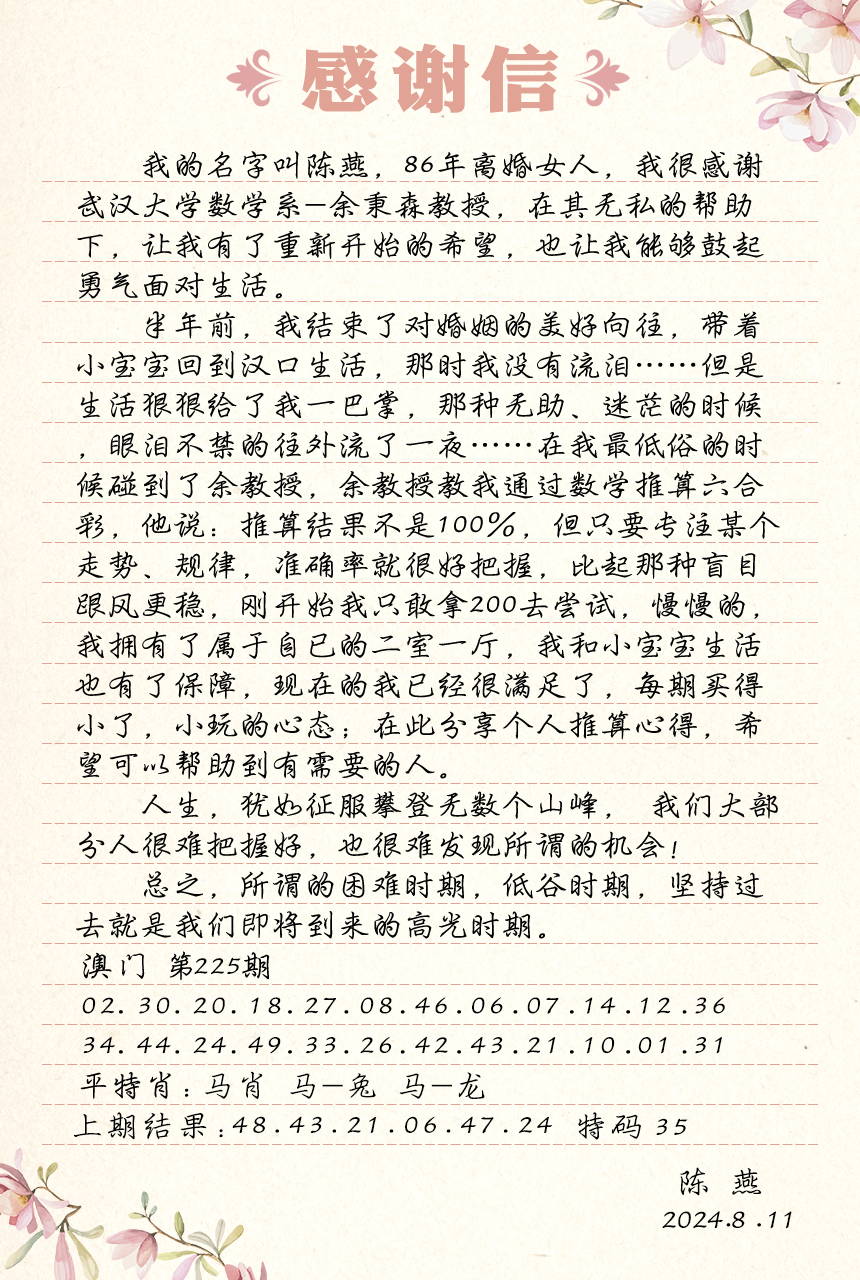 感谢信
我的名字叫陈燕，86年离婚女人，我很感谢
武汉大学数学系—余秉森教授，在其无私的帮助
下，让我有了重新开始的希望，也让我能够鼓起
勇气面对生活。
半年前，我结束了对婚姻的美好向往，带着
小宝宝回到汉口生活，那时我没有流泪……但是
生活狠狠给了我一巴掌，那种无助、迷茫的时候
，眼泪不禁的往外流了一夜……在我最低俗的时
候碰到了余教授，余教授教我通过数学推算六合
彩，他说：推算结果不是100%，但只要专注某个
走势、规律，准确率就很好把握，比起那种盲目
跟风更稳，刚开始我只敢拿200去尝试，慢慢的，
我拥有了属于自已的二室一厅，我和小宝宝生活
也有了保障，现在的我已经很满足了，每期买得
小了，小玩的心态；在此分享个人推算心得，希
望可以帮助到有需要的人。
人生，犹如征服攀登无数个山峰， 我们大部
分人很难把握好，也很难发现所谓的机会！
总之，所谓的困难时期，低谷时期，坚持过
去就是我们即将到来的高光时期。
澳门 第225期
02.30.20.18.27.08.46.06.07.14.12.36
34.44.24.49.33.26.42.43.21.10.01.31
平特肖：马肖 马—兔 马—龙
上期结果：48.43.21.06.47.24 特码 35
陈 燕
2024.8.11